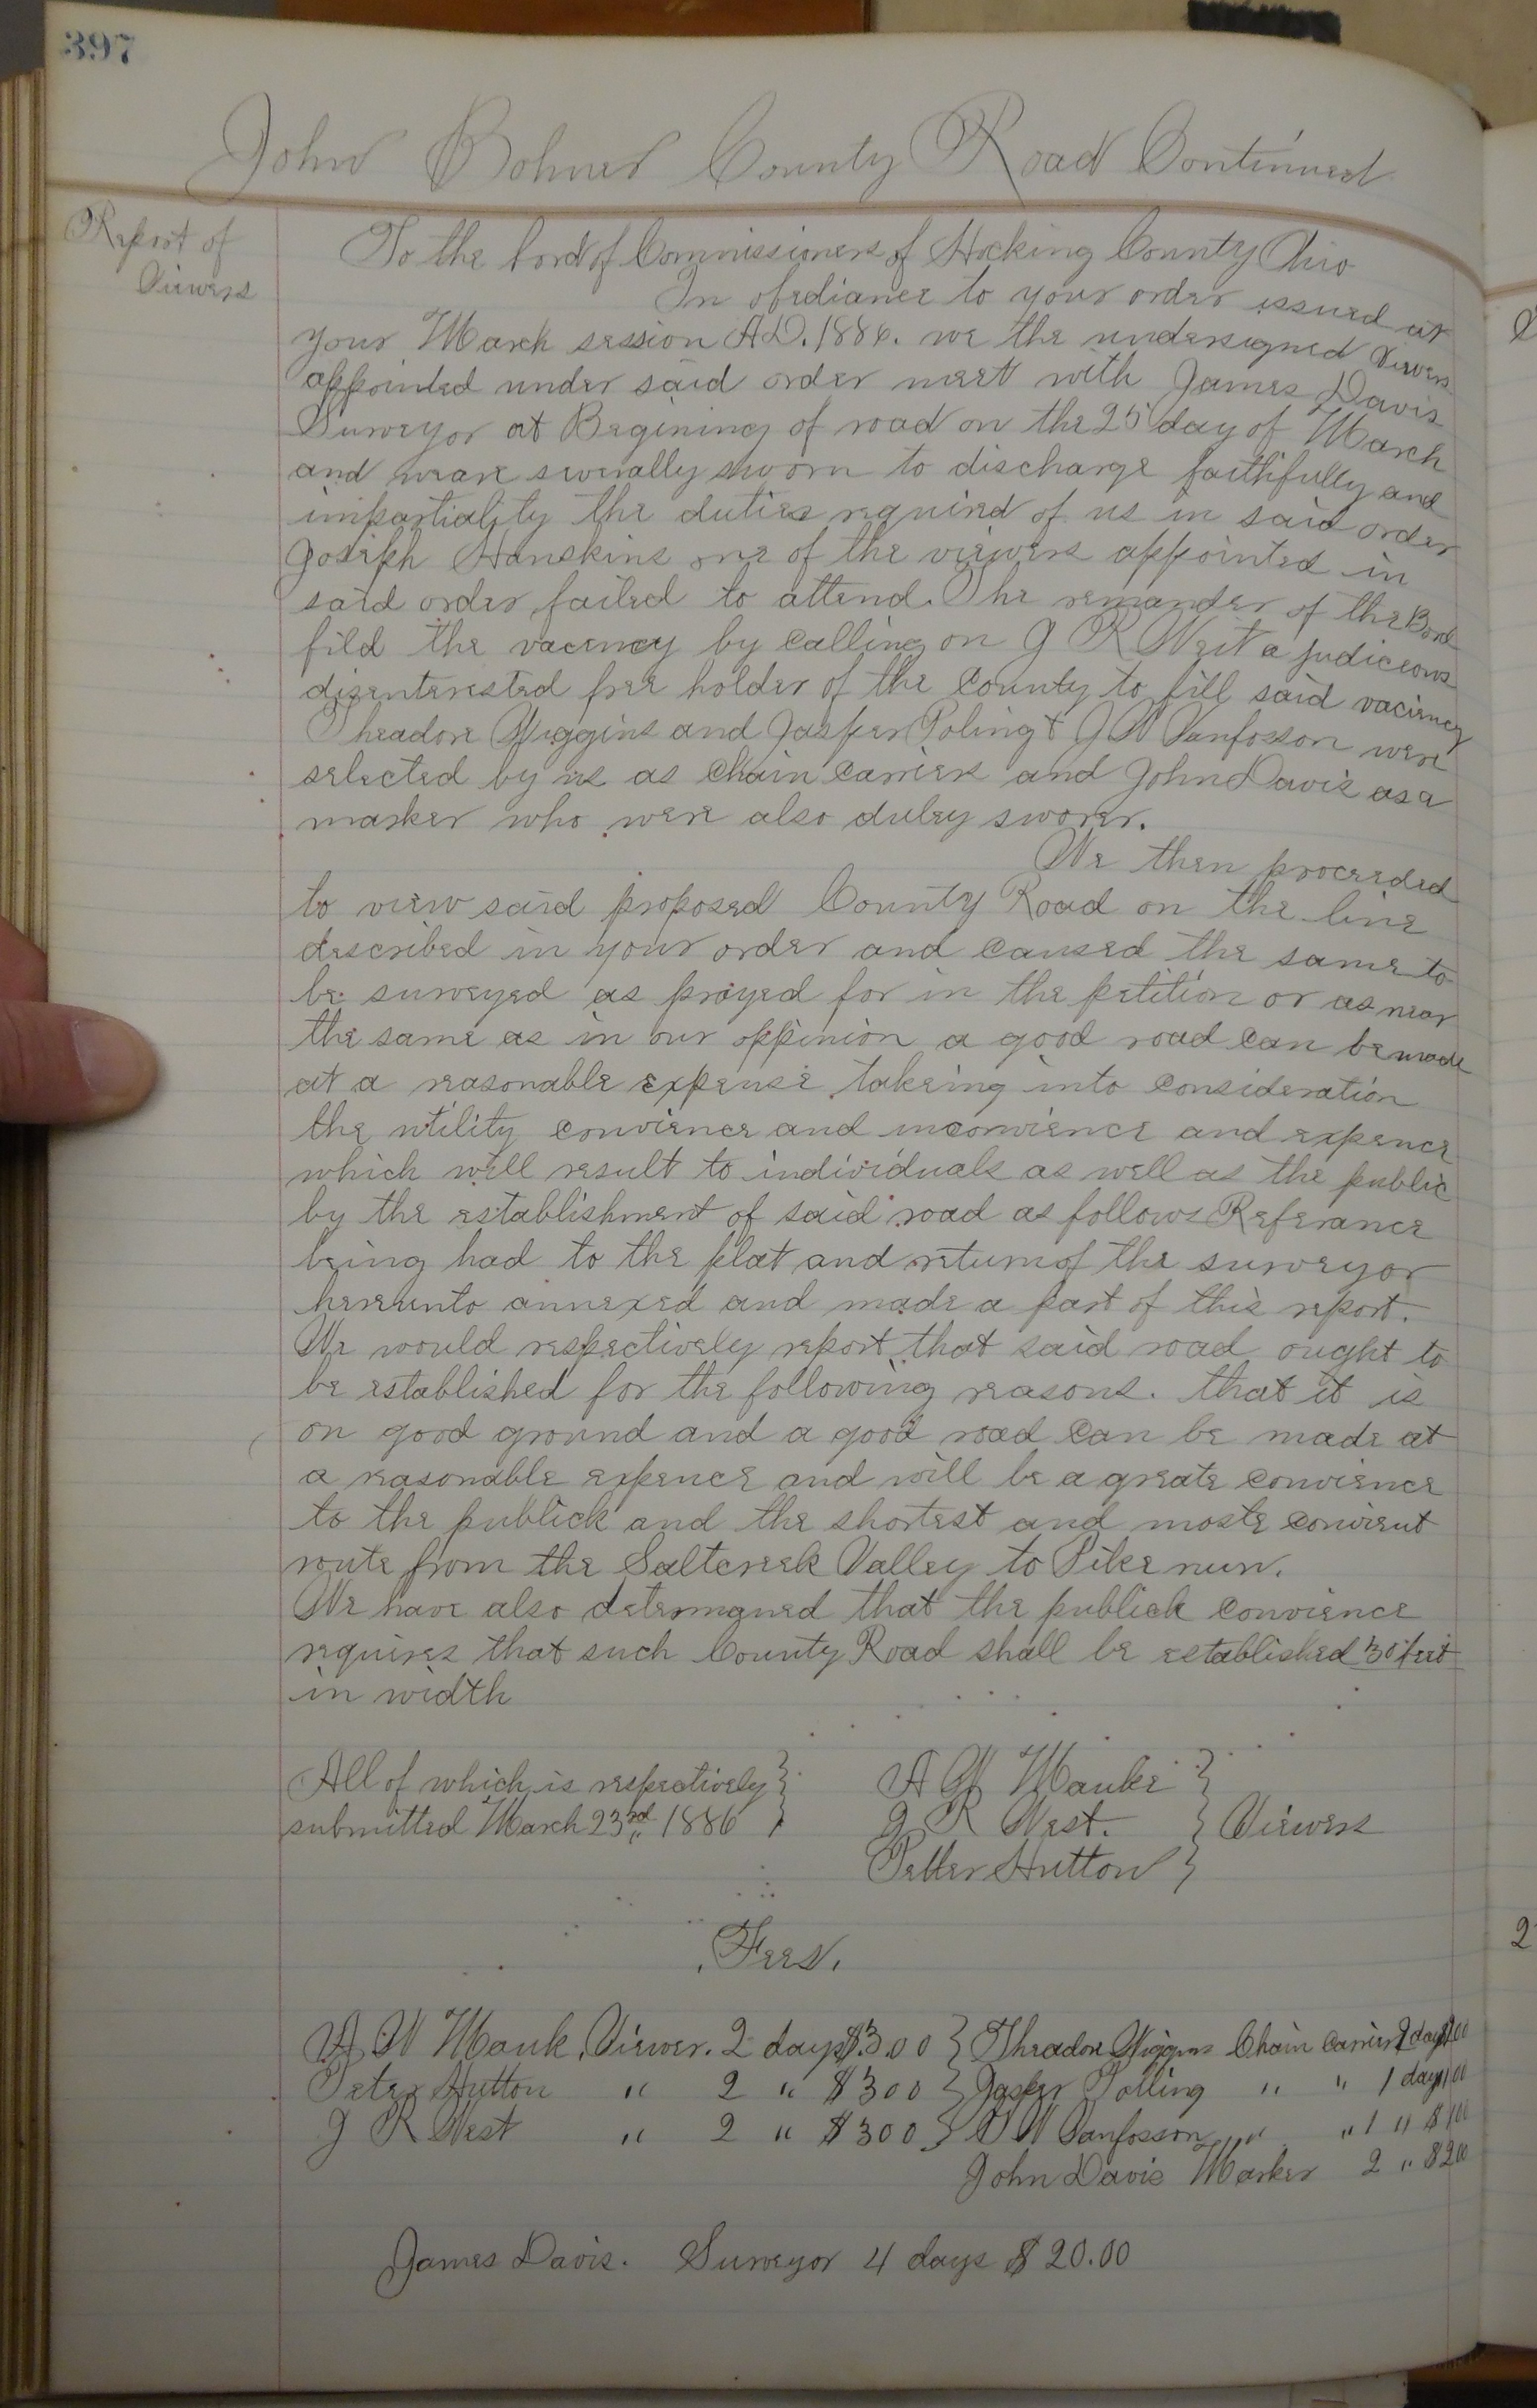 397
John Bohner County Road Continued
Report of
Viewers
To the bord of Commissioners of Hocking County Ohio
In obediance to your order issued at
your March session A.D. 1886. we the undersigned viewers
appointed under said order meet with James Davis
Surveyor at Begining of road on the 25 day of March
and weare sverally sworn to discharge faithfully and
impartiality the duties required of us in said order
Joseph Hanskins one of the viewers appointed in
said order failed to attend. The remander of the Bord
fild the vacency by calling on J R West a judiceous
disenterested free holder of the County to fill said vaciency
Theadore Wiggins and Jasper Poling & J W Vanfosson were
selected by us as chain carriers and John Davis as a
marker who were also duley sworn.
We then proceeded
to view said proposed County Road on the line
described in your order and caused the same to
be surveyed as prayed for in the petition or as near
the same as in our oppinion a good road can be made
at a reasonable expense takeing into consideration
the utility convience and inconvience and expence
which will result to individuals as well as the public
by the establishment of said road as follows Referance
being had to the plat and return of the surveyor
hereunto annexed and made a part of this report.
We would respectively report that said road ought to
be established for the following reasons. that it is
on good ground and a good road can be made at
a reasonable expence and will be a greate convience
to the publick and the shortest and moste convient
route from the Saltcreek Valley to Pike run.
We have also determaned that the publick convience
requires that such County Road shall be established 30 feet
in width
All of which is respectively } A W Mauke }
submitted March 23rd 1886 } J R West. } Viewers
Petter Hutton }
Fees.
A W Mauk, Viewer. 2 days $3.00 } Theadore Wiggins Chain Carrier 2 days
Peter Hutton " 2 " $300 } Jasper Polling " " 1 day 100
J R West " 2 " $300 } J W Vanfosson " " 1 " $100
John Davis Marker 2 " $200
James Davis. Surveyor 4 days $20.00
2